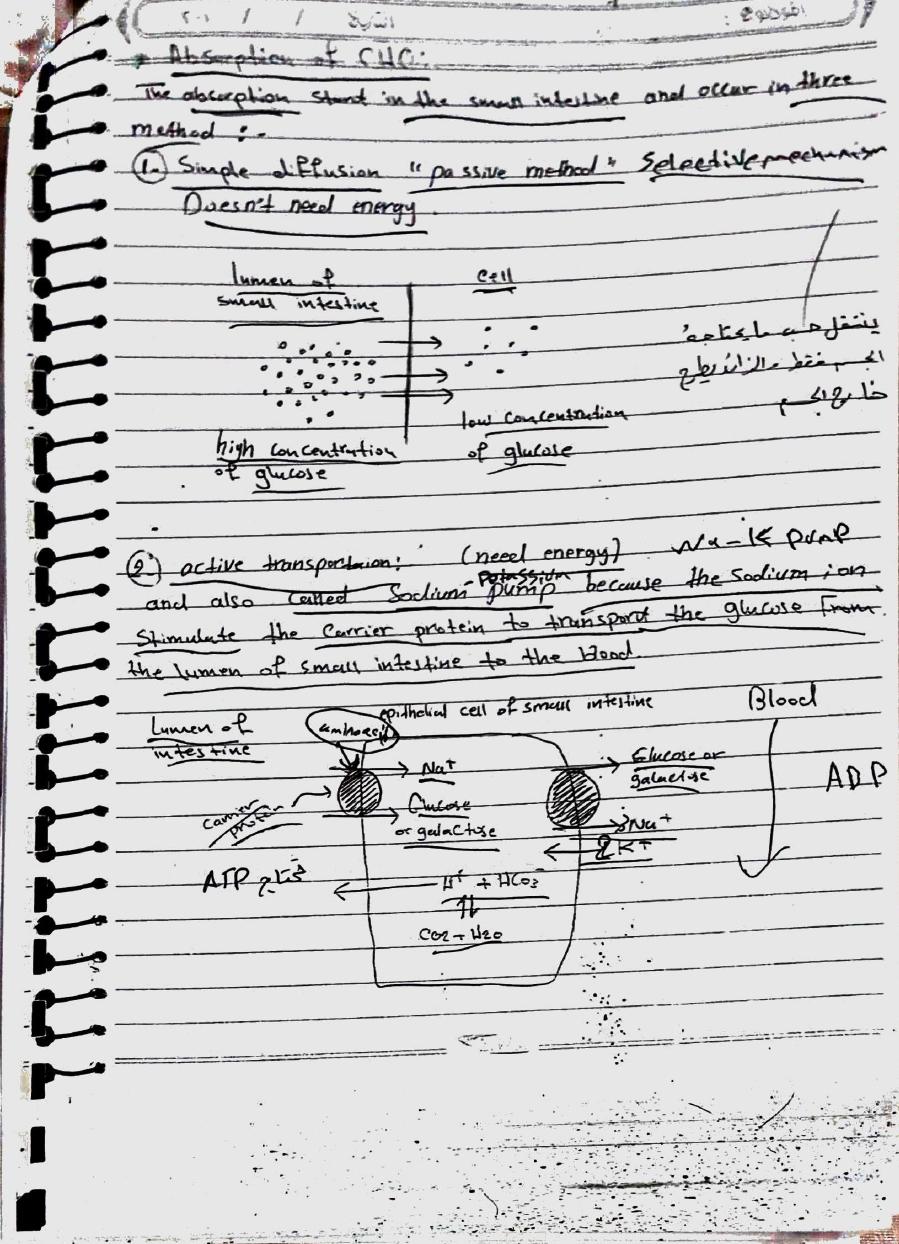 الموضوع :
التاريخ / / ٢٠١
* Absorption of CHO:
The absorption start in the small intestine and occur in three
method :-
1- Simple diffusion "passive method" Selective mechanism
Doesn't need energy.
lumen of
small intestine
cell
ينتقل حسب ما يحتاجه
الجسم فقط والزائد يطرح
خارج الجسم
low concentration
of glucose
high concentration
of glucose
2 active transportaion: (need energy) Na-K pump
and also called Sodium-potassium pump because the Sodium ion
Stimulate the Carrier protein to transport the glucose from
the lumen of small intestine to the blood.
Lumen of
intestine
epithelial cell of small intestine
Blood
Na+
Glucose or
galactose
ADP
carrier
protein
Glucose
or galactose
3Na+
2K+
ATP
H+ + HCO3-
CO2 + H2O